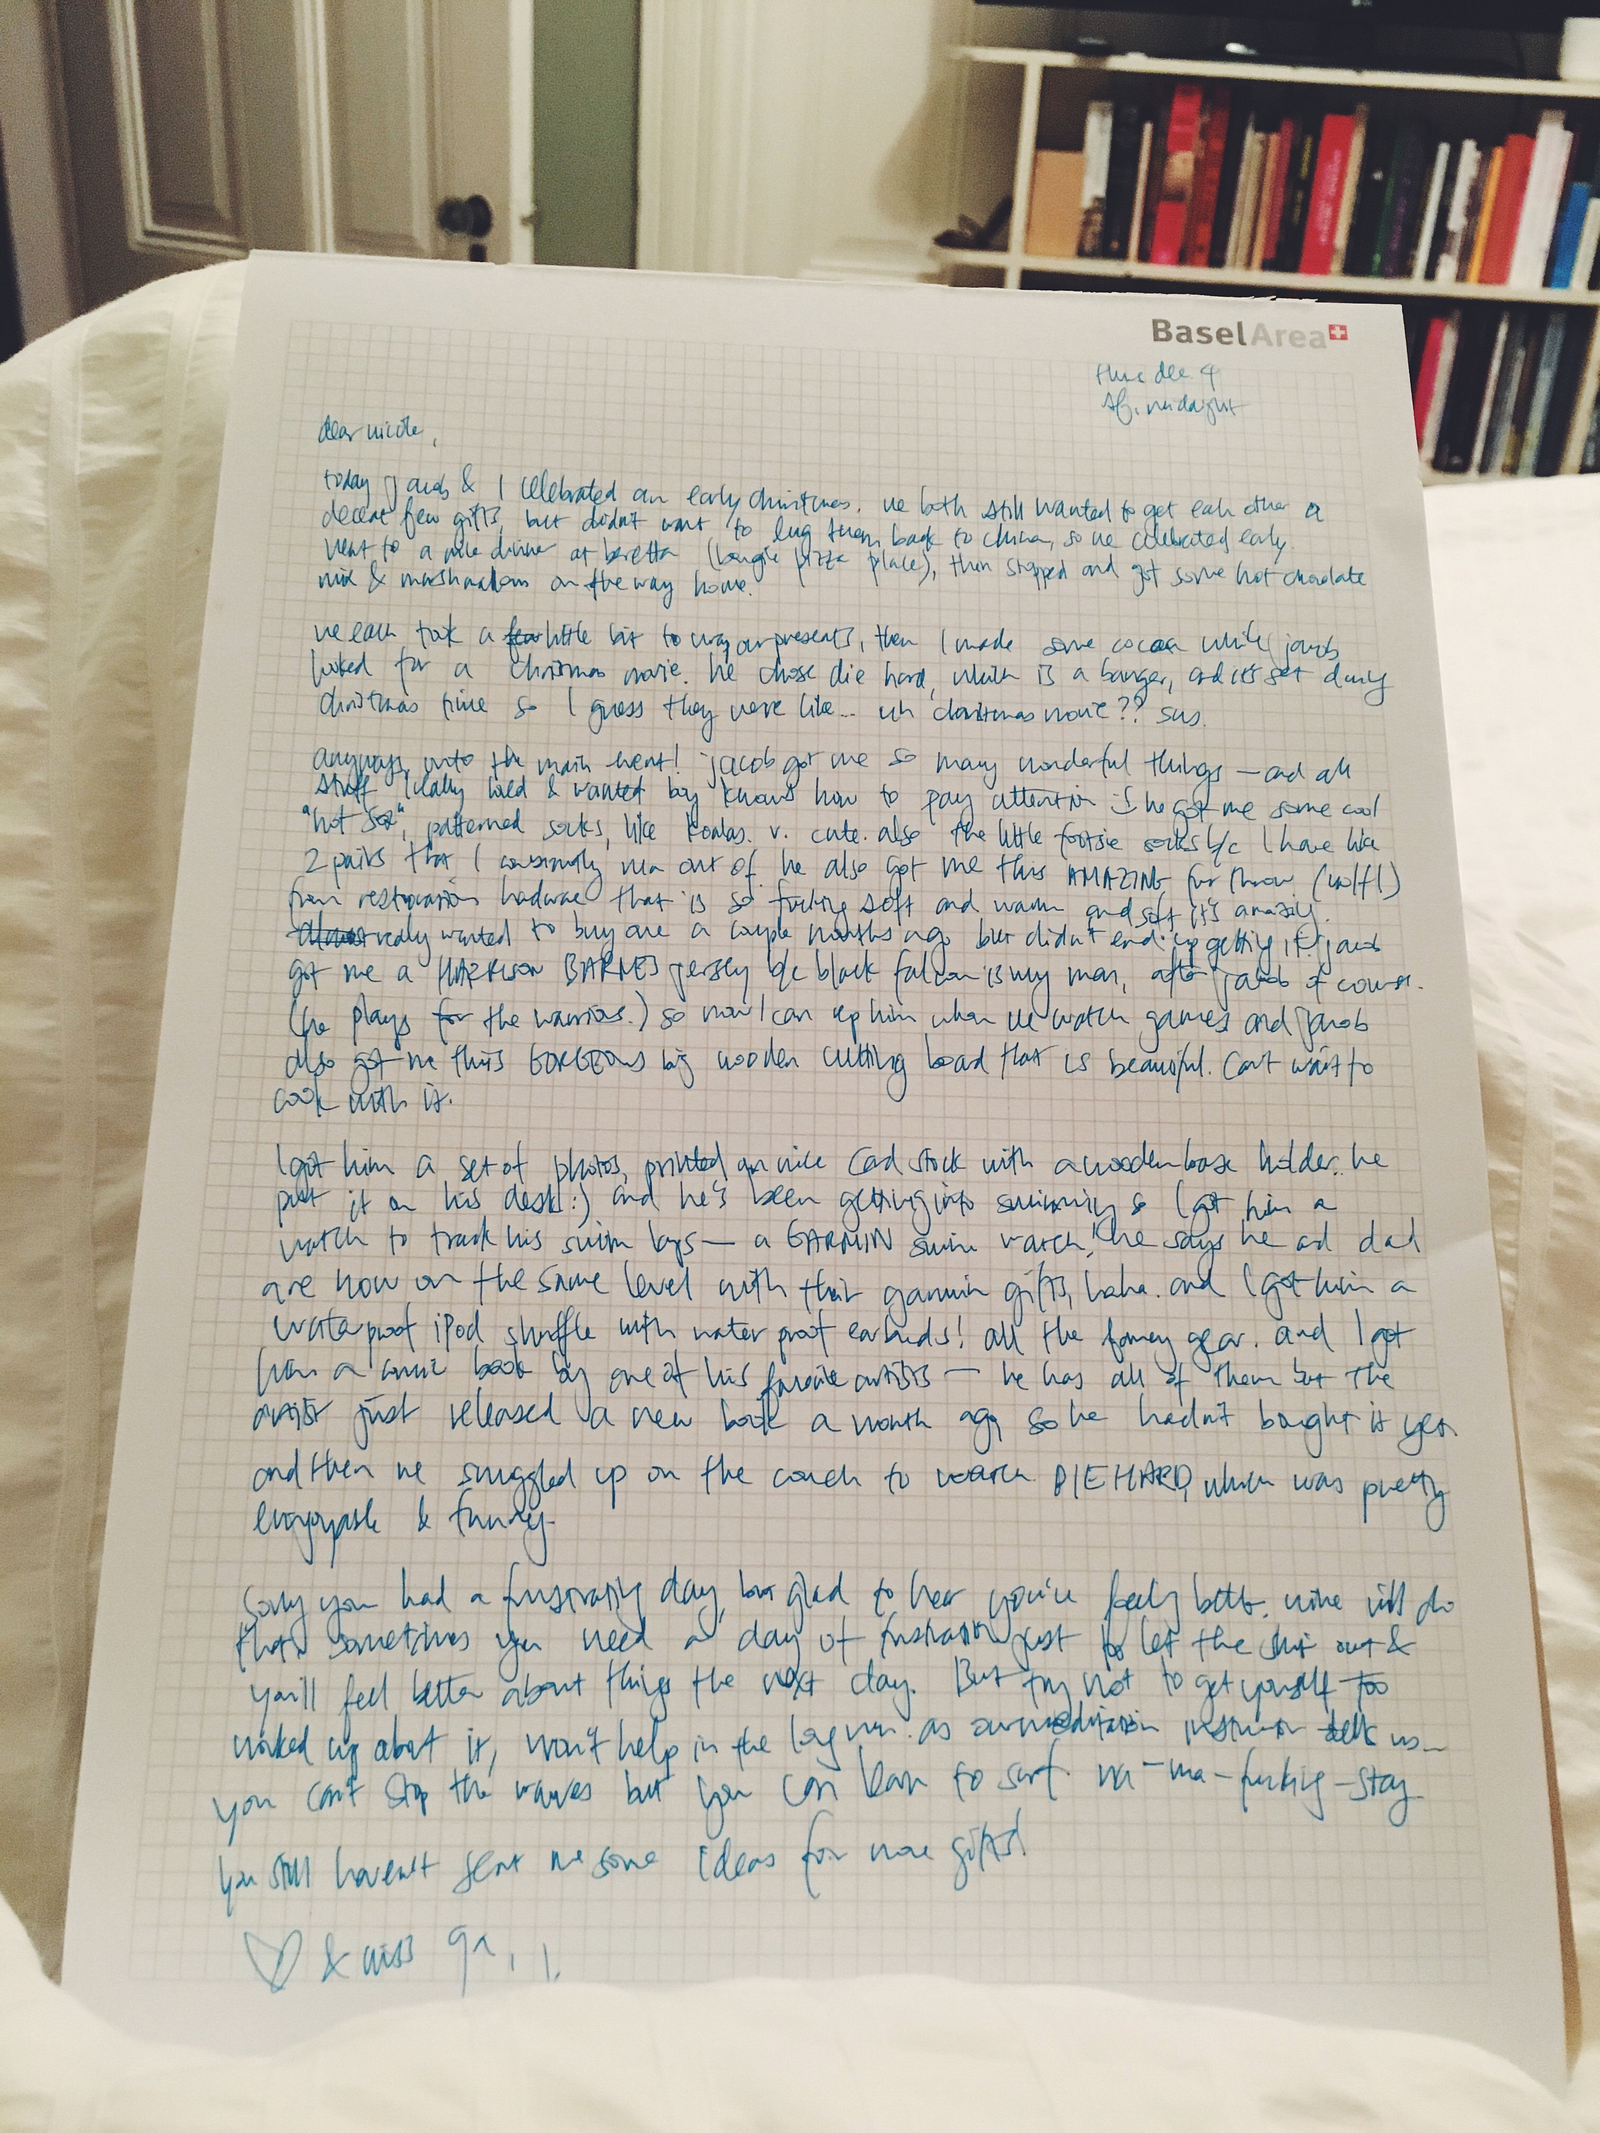 BaselArea
thurs dec. 4
sf, midnight
dear nicole,
today jacob & I celebrated an early christmas. we both still wanted to get each other a
decent few gifts, but didn't want to lug them back to china, so we celebrated early.
went to a nice dinner at beretta (bougie pizza place), then stopped and got some hot chocolate
mix & marshmallows on the way home.
we each took a little bit to wrap our presents, then I made some cocoa while jacob
looked for a christmas movie. he chose die hard, which is a banger, and it's set during
christmas time so I guess they were like... uh christmas movie?? sus.
anyways, onto the main event! jacob got me so many wonderful things — and all
stuff I really loved & wanted boy knows how to pay attention :) he got me some cool
"hot sox", patterned socks, like koalas. v. cute. also the little footsie socks b/c I have like
2 pairs that I constantly run out of. he also got me this AMAZING fur throw (wolf!)
from restoration hardware that is so fucking soft and warm and soft it's amazing.
really wanted to buy one a couple months ago but didn't end up getting it! jacob
got me a HARRISON BARNES jersey b/c black falcon is my man, after jacob of course.
(he plays for the warriors.) so now I can rep him when we watch games and jacob
also got me this GORGEOUS big wooden cutting board that is beautiful. Can't wait to
cook with it.
I got him a set of photos, printed on nice card stock with a wooden base holder. he
put it on his desk :) and he's been getting into swimming so I got him a
watch to track his swim laps — a GARMIN swim watch! he says he and dad
are now on the same level with their garmin gifts, haha. and I got him a
waterproof iPod shuffle with waterproof earbuds! all the fancy gear. and I got
him a comic book by one of his favorite artists — he has all of them but the
artist just released a new book a month ago, so he hadn't bought it yet.
and then we snuggled up on the couch to watch DIE HARD, which was pretty
enjoyable & funny.
Sorry you had a frustrating day, but glad to hear you're feeling better. mike will do
that. sometimes you need a day of frustration just to let the shit out &
you'll feel better about things the next day. But try not to get yourself too
worked up about it, won't help in the long run. as our meditation instructor tells us —
you can't stop the waves but you can learn to surf. na-ma-fucking-stay.
you still haven't sent me some ideas for more gifts!
& miss ya,